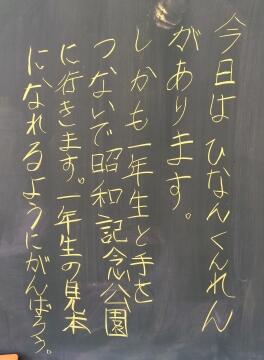 今日はひなんくんれん
があります。
しかも一年生と手を
つないで昭和記念公園
に行きます。一年生の見本
になれるようにがんばろう。